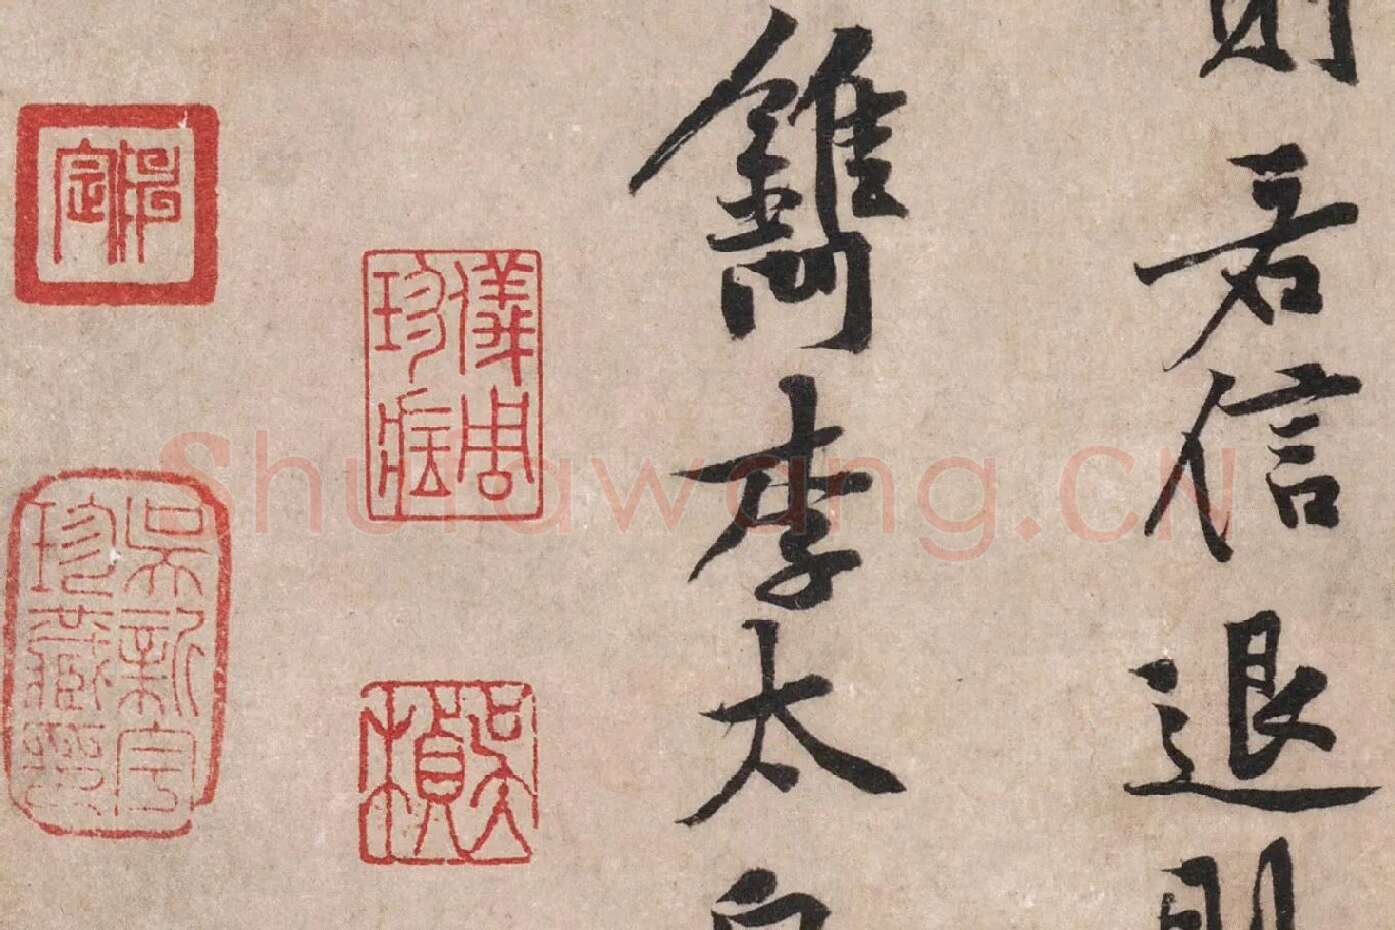 則君信退
鐫李太白
儀周珍藏
吳楨
吳新宇珍藏印
Shufawang.CN